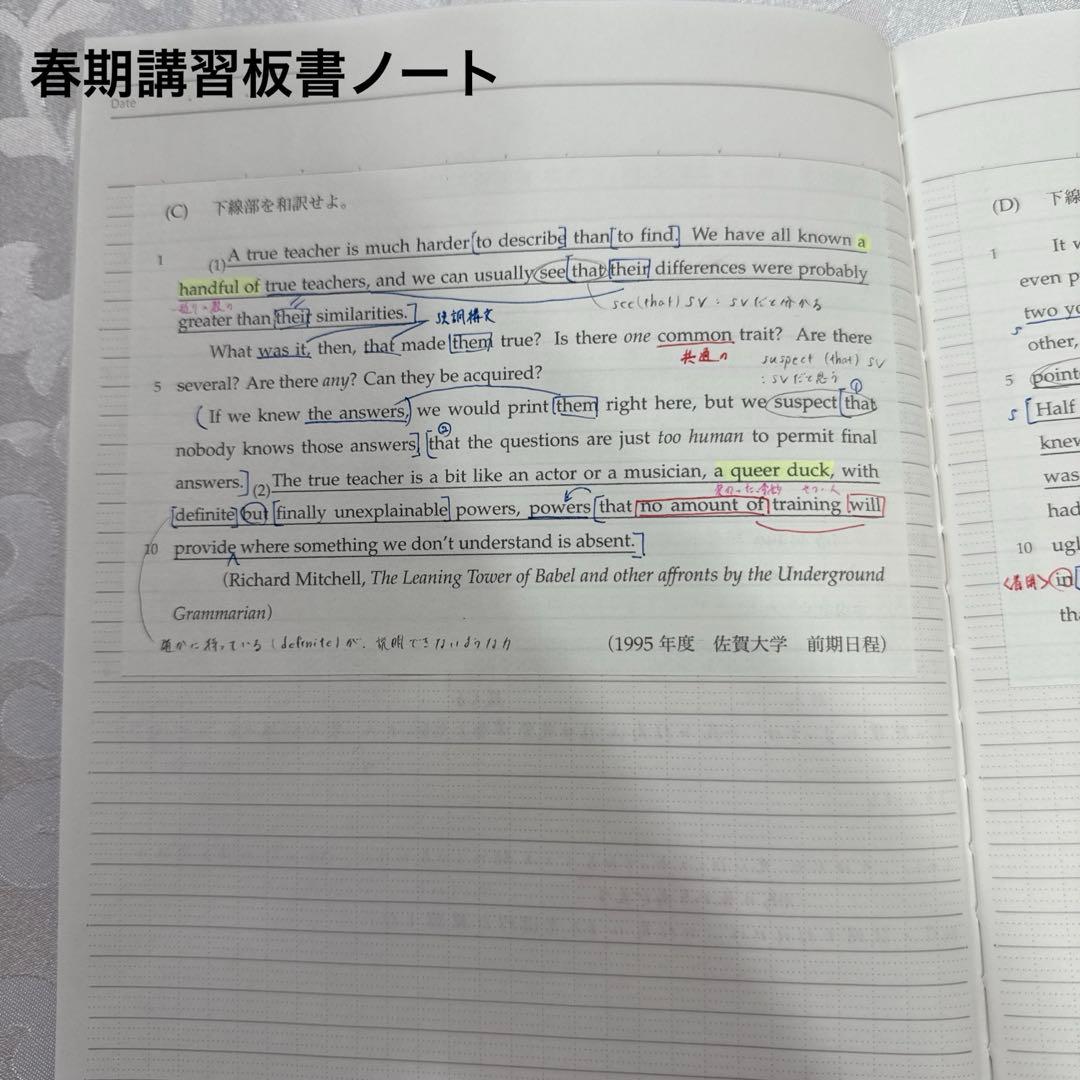 春期講習板書ノート
Date
(C) 下線部を和訳せよ。
1 (1)A true teacher is much harder [to describe] than [to find]. We have all known a
handful of true teachers, and we can usually see [that their differences were probably
see (that) SV : SVだと分かる
greater than their similarities.] 強調構文
What was it, then, that made them true? Is there one common trait? Are there
共通の suspect (that) SV
: SVだと思う
5 several? Are there any? Can they be acquired?
①
(If we knew the answers, we would print them right here, but we suspect [that
②
nobody knows those answers] [that the questions are just too human to permit final
answers.] (2)The true teacher is a bit like an actor or a musician, a queer duck, with
[definite] but [finally unexplainable] powers, powers [that no amount of training will
10 provide where something we don't understand is absent.]
(Richard Mitchell, The Leaning Tower of Babel and other affronts by the Underground
Grammarian)
確かに持っている (definite) が、説明できないような力
(1995年度 佐賀大学 前期日程)
(D) 下線
1 It w
even p
two yo
s
other,
5 point
s [Half
knew
was
had
10 ugl
<着用> in [
tha